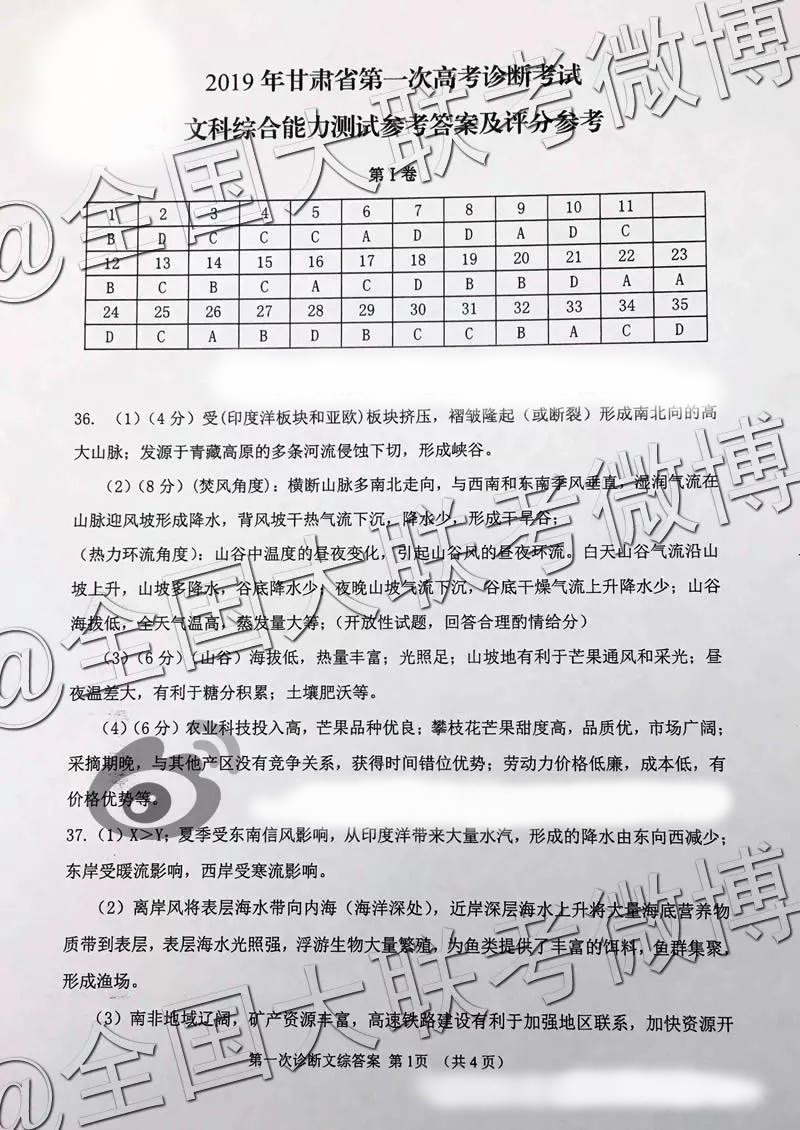 2019 年甘肃省第一次高考诊断考试
文科综合能力测试参考答案及评分参考
第 I 卷
1 2 3 4 5 6 7 8 9 10 11
B D C C C A D D A D C
12 13 14 15 16 17 18 19 20 21 22 23
B C B C A C D B B D A A
24 25 26 27 28 29 30 31 32 33 34 35
D C A B D B C C B A C D
36. （1）（4 分）受(印度洋板块和亚欧)板块挤压，褶皱隆起（或断裂）形成南北向的高
大山脉；发源于青藏高原的多条河流侵蚀下切，形成峡谷。
（2）（8 分）(焚风角度)：横断山脉多南北走向，与西南和东南季风垂直，湿润气流在
山脉迎风坡形成降水，背风坡干热气流下沉，降水少，形成干旱谷；
（热力环流角度）：山谷中温度的昼夜变化，引起山谷风的昼夜环流。白天山谷气流沿山
坡上升，山坡多降水，谷底降水少；夜晚山坡气流下沉，谷底干燥气流上升降水少；山谷
海拔低，全天气温高，蒸发量大等；（开放性试题，回答合理酌情给分）
（3）（6 分）（山谷）海拔低，热量丰富；光照足；山坡地有利于芒果通风和采光；昼
夜温差大，有利于糖分积累；土壤肥沃等。
（4）（6 分）农业科技投入高，芒果品种优良；攀枝花芒果甜度高，品质优，市场广阔；
采摘期晚，与其他产区没有竞争关系，获得时间错位优势；劳动力价格低廉，成本低，有
价格优势等。
37.（1）X＞Y；夏季受东南信风影响，从印度洋带来大量水汽，形成的降水由东向西减少；
东岸受暖流影响，西岸受寒流影响。
（2）离岸风将表层海水带向内海（海洋深处），近岸深层海水上升将大量海底营养物
质带到表层，表层海水光照强，浮游生物大量繁殖，为鱼类提供了丰富的饵料，鱼群集聚，
形成渔场。
（3）南非地域辽阔，矿产资源丰富，高速铁路建设有利于加强地区联系，加快资源开
第一次诊断文综答案 第 1页 （共 4 页）
@全国大联考微博
@全国大联考微博
@全国大联考微博